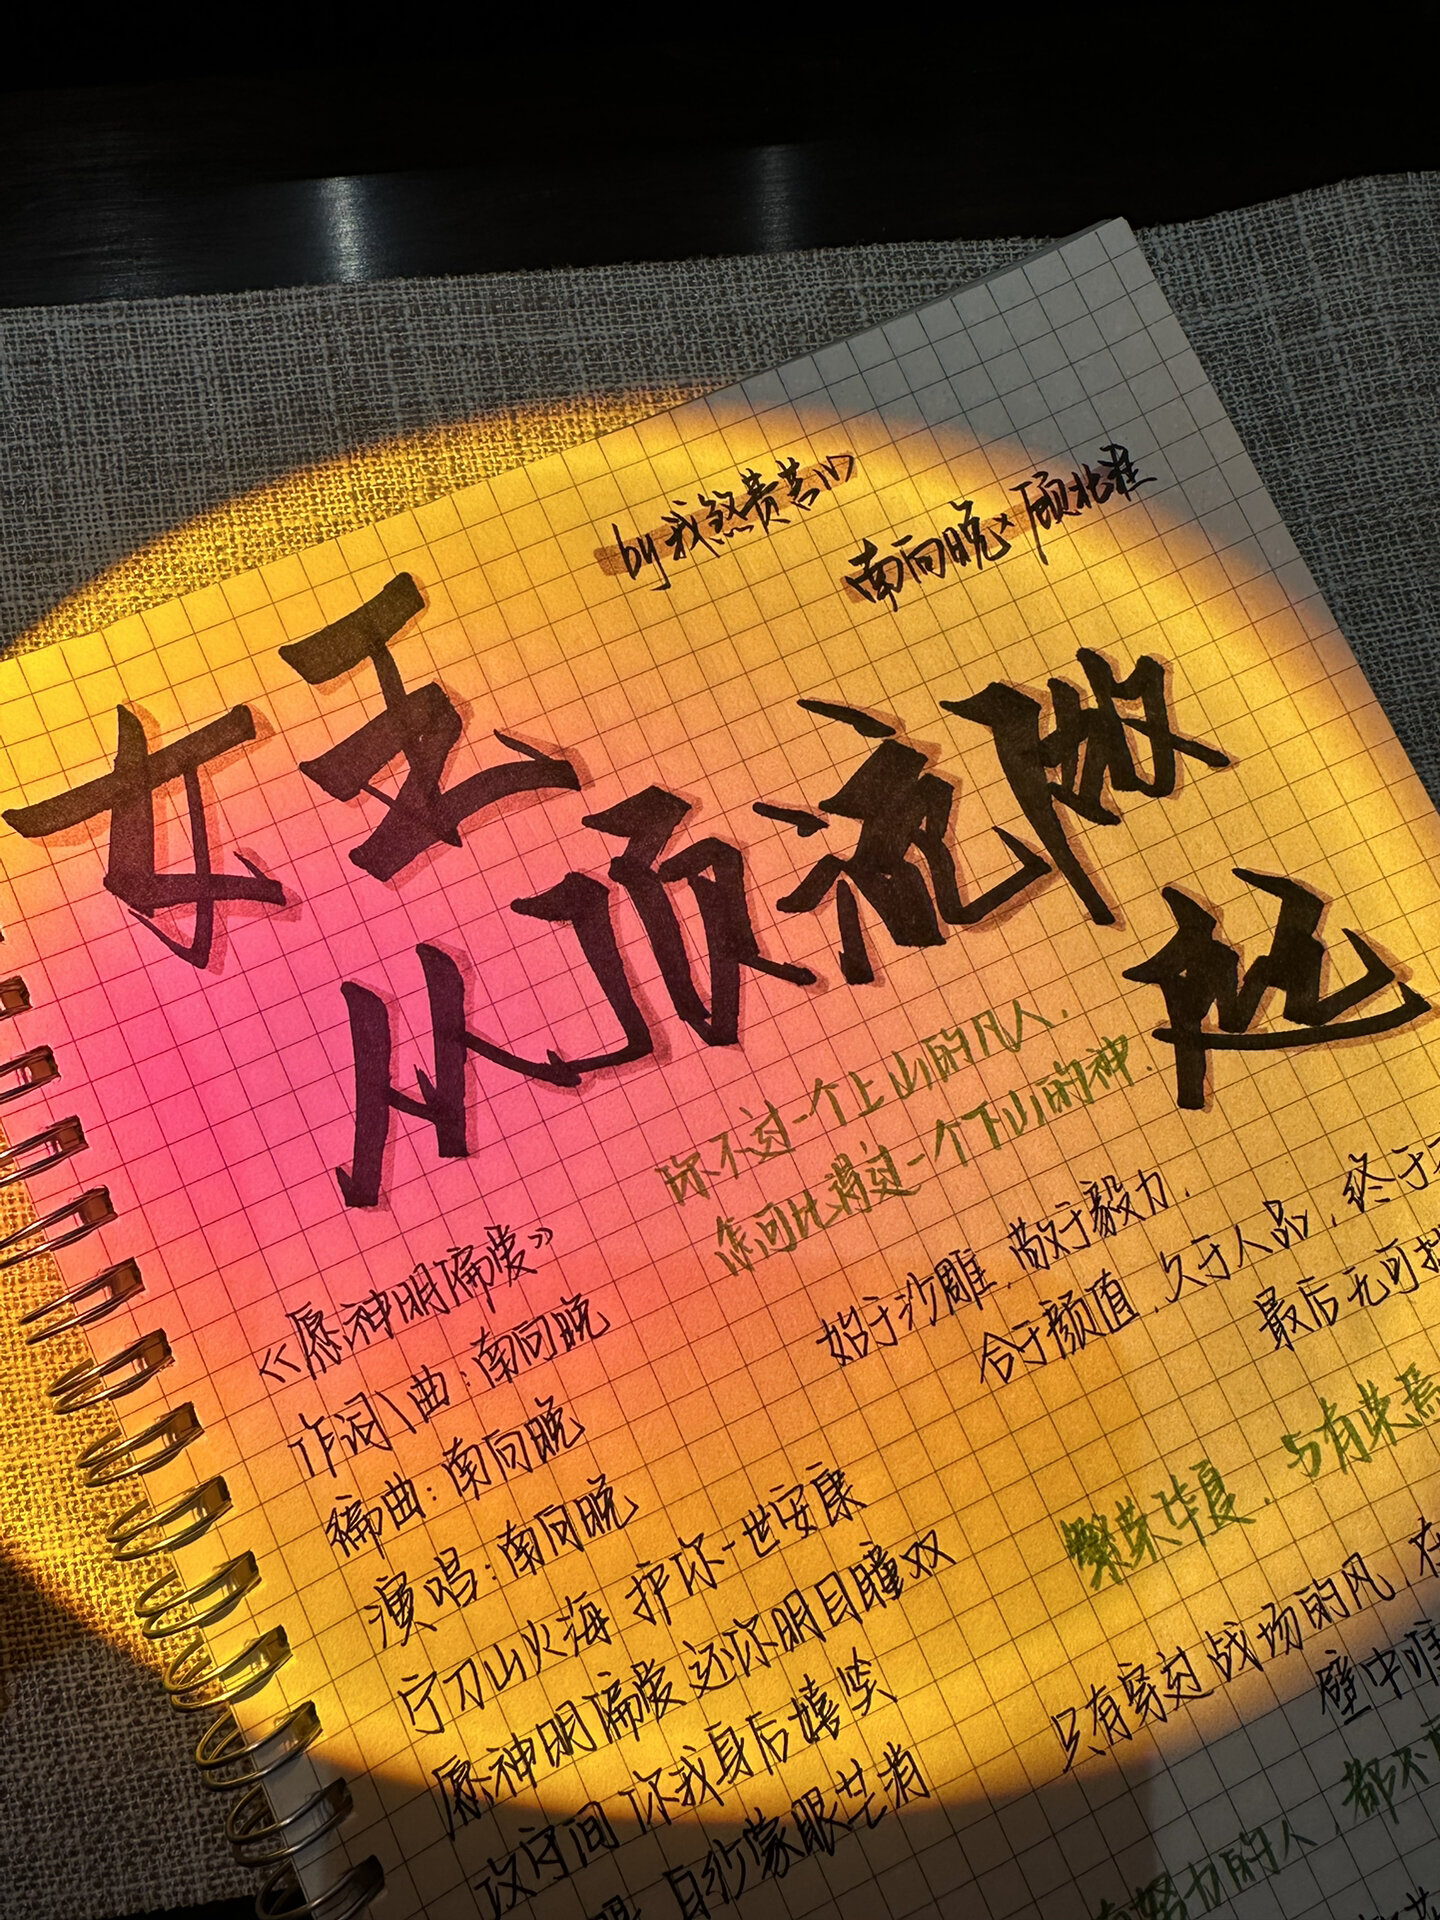 by 我煞费苦心
南向晚×顾北淮
女王
从顶流做
起
你不过一个上山的凡人.
怎可比得过一个下山的神.
始于沙雕.敬于毅力.
合于颜值.久于人品.终于
最后无可
《愿神明偏爱》
作词\曲:南向晚
编曲:南向晚
演唱:南向晚
宁刀山火海 护你一世安康
愿神明偏爱 还你明目瞳双
这空间 你我身后嬉笑
白纱蒙眼
繁荣华夏.与有荣焉
只有穿过战场的风.在
壁中
努力的人.都不